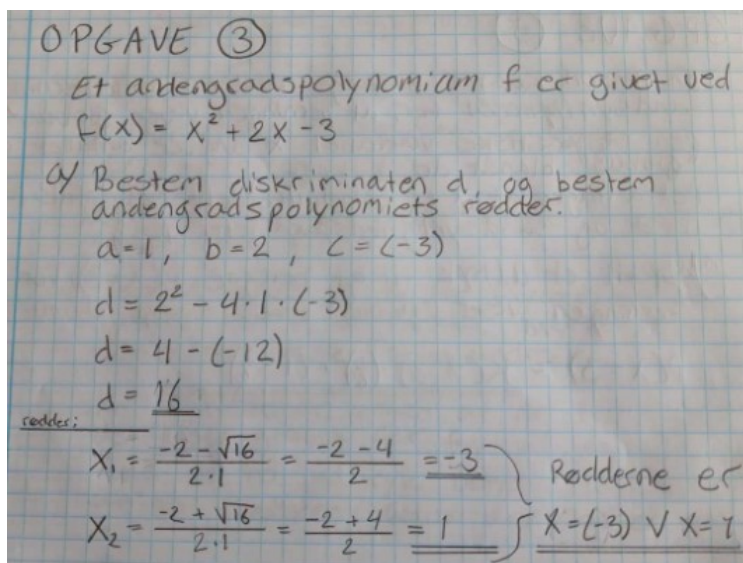 OPGAVE ③
Et andengradspolynomium f er givet ved
f(x) = x² + 2x - 3
a) Bestem diskriminaten d, og bestem
andengradspolynomiets rødder.
a = 1, b = 2, c = (-3)
d = 2² - 4·1·(-3)
d = 4 - (-12)
d = 16
rødder:
X₁ = (-2 - √16)/(2·1) = (-2 - 4)/2 = -3
X₂ = (-2 + √16)/(2·1) = (-2 + 4)/2 = 1
Rødderne er
X = (-3) ∨ X = 1